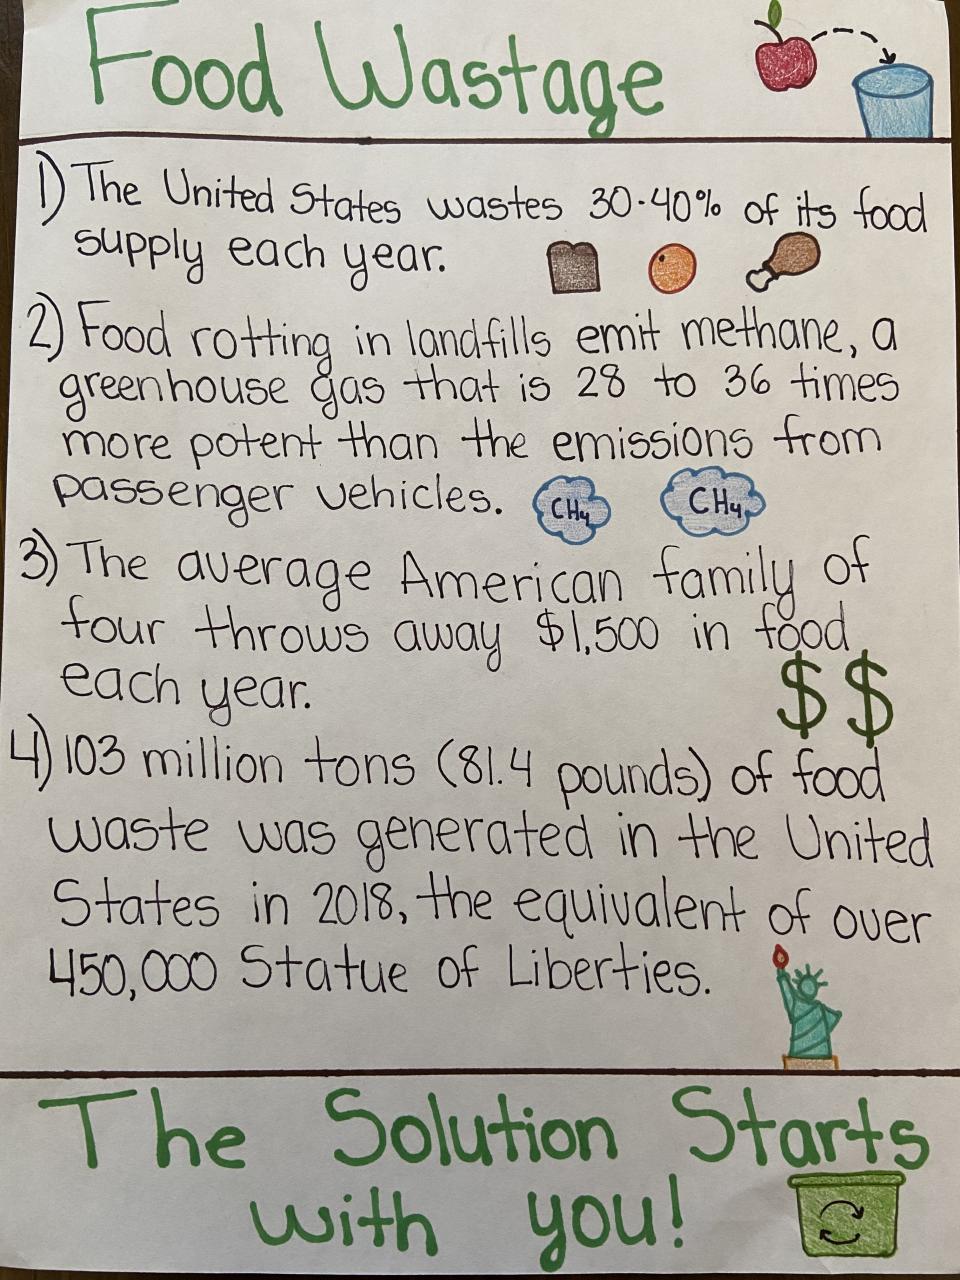 Food Wastage
1) The United States wastes 30-40% of its food
supply each year.
2) Food rotting in landfills emit methane, a
greenhouse gas that is 28 to 36 times
more potent than the emissions from
passenger vehicles.
CH4 CH4
3) The average American family of
four throws away $1,500 in food
each year.
$ $
4) 103 million tons (81.4 pounds) of food
waste was generated in the United
States in 2018, the equivalent of over
450,000 Statue of Liberties.
The Solution Starts
with you!